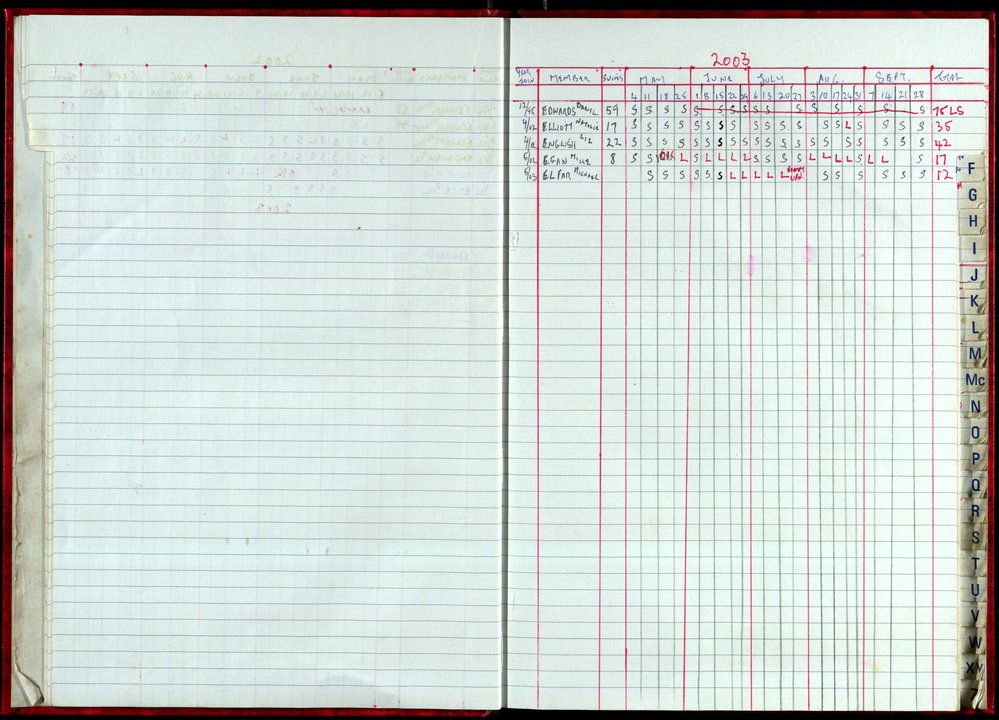 2003
YEAR JOIN MEMBER SWIMS MAY JUNE JULY AUG. SEPT.
4 11 18 25 1 8 15 22 29 6 13 20 27 3 10 17 24 31 7 14 21 28
12/95 EDWARDS DARYL. 59 S S S S S S S S S S S S S S S S S 75 LS
4/02 ELLIOTT NATALIE 17 S S S S S S S S S S S S S S L S S S S 35
4/02 ENGLISH LIZ 22 S S S S S S S S S S S S S S S S S S S S 42
5/02 EGAN MIKE 8 S S L S L L L L S S S S L L L L S L L 17
5/03 ELFAR MICHAEL S S S S S S L L L L L S S S S S S 12
F
G
H
I
J
K
L
M
Mc
N
O
P
Q
R
S
T
U
V
W